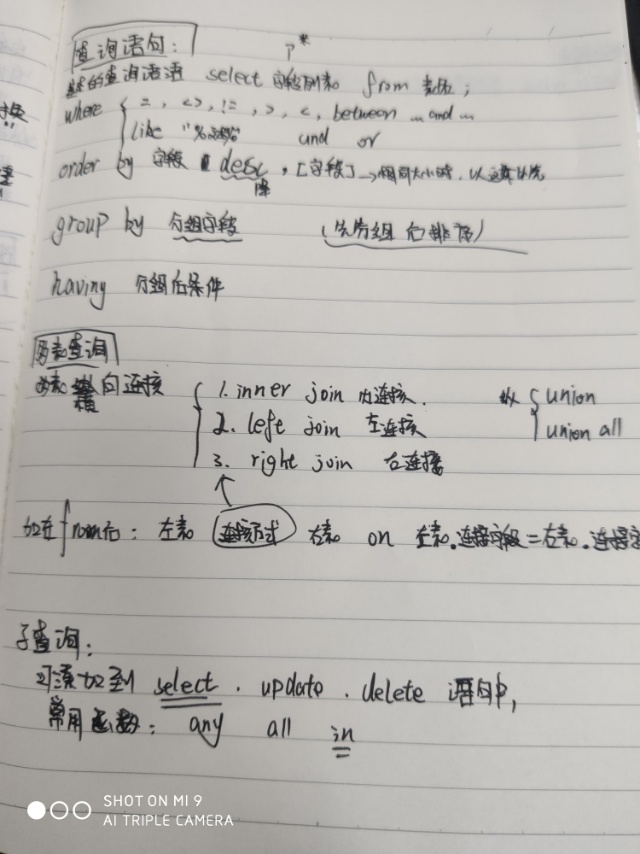 查询语句：
*
基本的查询语法 select 字段列表 from 表名；
where =，<>，!=，>，<，between … and …
like "%%" and or
order by 字段 desc，[字段]→相同大小时，以
降
group by 分组字段 （先分组后排序）
having 分组后条件
两表查询
两表 横向连接
1. inner join 内连接.
2. left join 左连接
3. right join 右连接
纵 union
union all
加在from后：左表 连接方式 右表 on 左表.连接字段=右表.连接字
子查询：
可添加到 select . update . delete 语句中，
常用函数：any all in
SHOT ON MI 9
AI TRIPLE CAMERA